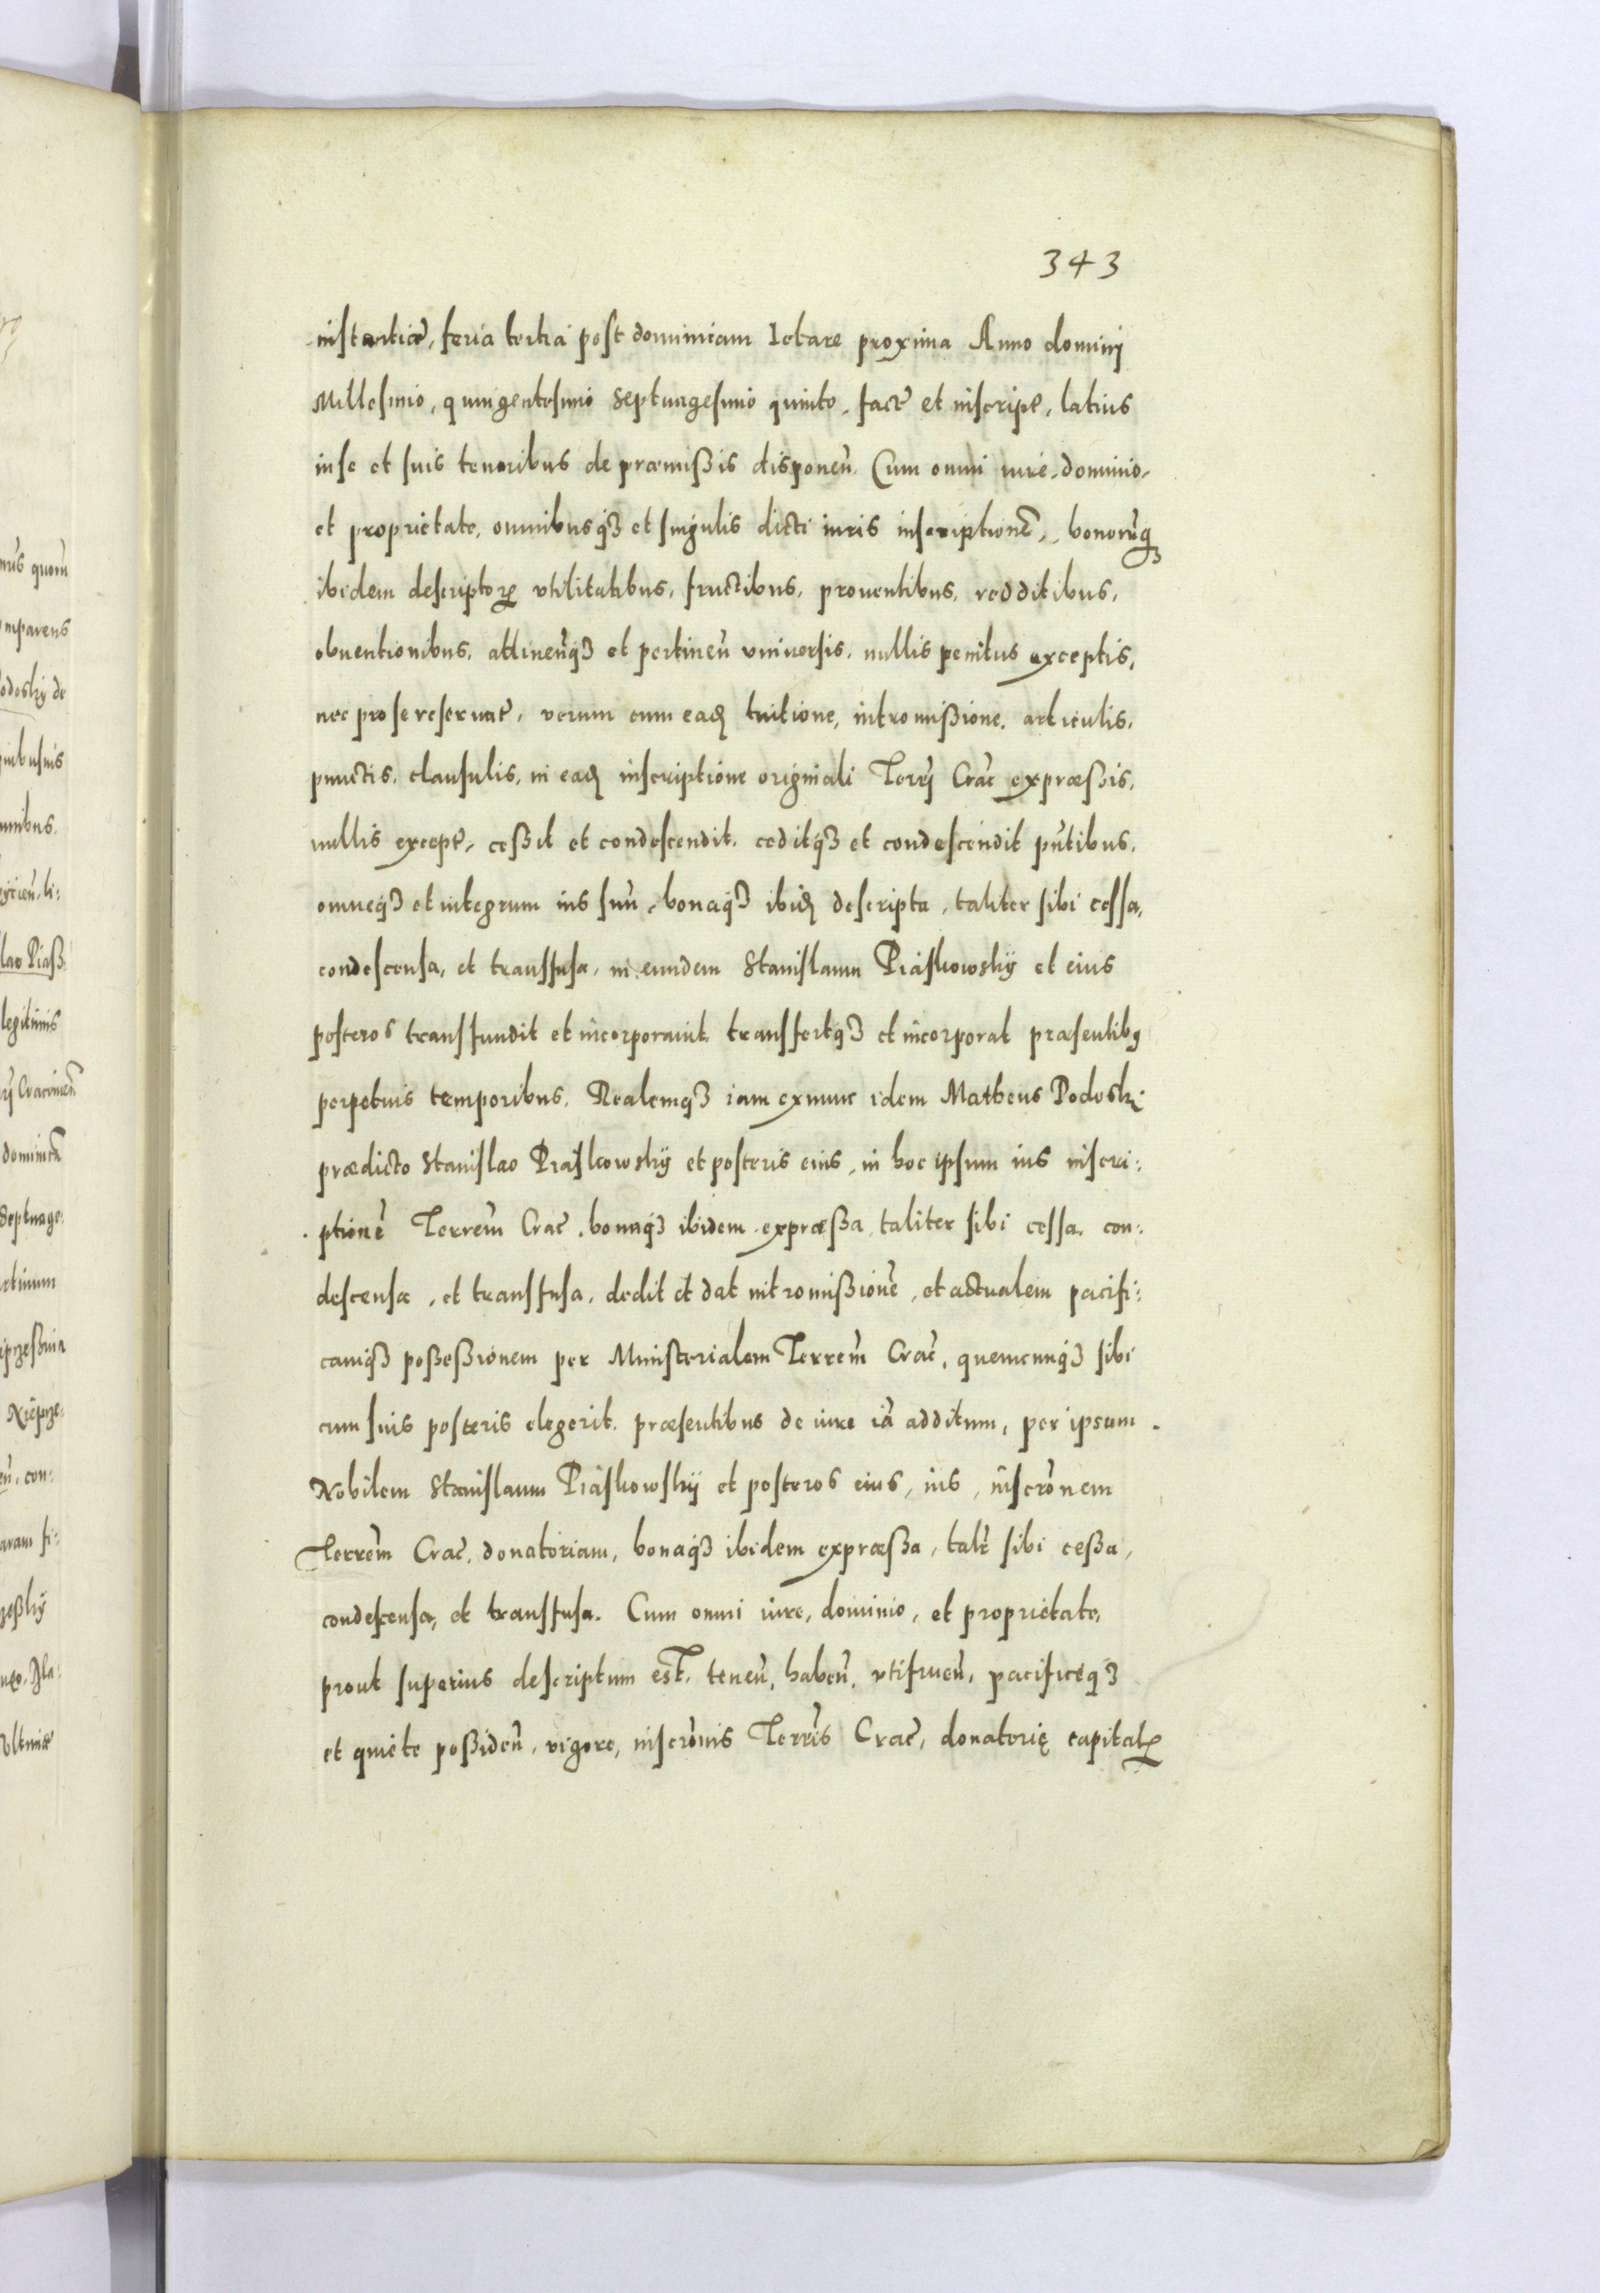 343
instantiæ, feria tertia post dominicam Letare proxima Anno dominj
Millesimo, quingentesimo Septuagesimo quinto, fact̄ et inscript̄, latius
in se et suis tenoribus de præmißis disponeñ. Cum omni iure, dominio,
et proprietate, omnibusqʒ et singulis dicti iuris inscriptionē, bonorūqʒ
ibidem descriptoꝝ vtilitatibus, fructibus, prouentibus, redditibus,
obuentionibus, attineñqʒ et pertineñ vniuersis, nullis penitus exceptis,
nec pro se reseruat̄, verum cum eadꝫ tuitione, intromißione, articulis,
punctis, clausulis, in eadꝫ inscriptione originali Terrj Crac̄ expræßis,
nullis except̄, ceßit et condescendit, ceditqʒ et condescendit pn̄tibus,
omneqʒ et integrum ius suū, bonaqʒ ibidꝫ descripta, taliter sibi cessa,
condescensa, et transfusa, in eundem Stanislaum Piaskowskÿ et eius
posteros transfundit et incorporauit, transfertqʒ et incorporat præsentibꝰ
perpetuis temporibus. Realemqʒ iam exnunc idem Matheus Podoskj
prædicto Stanislao Piaskowskÿ et posteris eius, in hoc ipsum ius inscri:
ptionē Terrem̄ Crac̄, bonaqʒ ibidem expræßa, taliter sibi cessa, con:
descensa, et transfusa, dedit et dat intromißionē, et actualem pacifi:
camqʒ poßeßionem per Ministerialem Terrem̄ Crac̄, quemcunqʒ sibi
cum suis posteris elegerit, præsentibus de iure iā additum, per ipsum
Nobilem Stanislaum Piaskowskÿ et posteros eius, ius, inscrōnem
Terrem̄ Crac̄, donatoriam, bonaqʒ ibidem expræßa, talr̄ sibi ceßa,
condescensa, et transfusa. Cum omni iure, dominio, et proprietate,
prout superius descriptum est, teneñ, habeñ, vtifrueñ, pacificeqʒ
et quiete poßideñ, vigore, inscrōnis Terrr̄is Crac̄, donatorię capitalꝭ